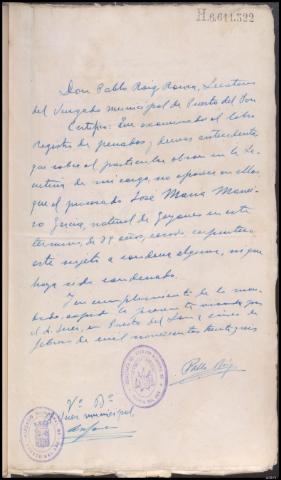 H.6.611.322
Don Pablo Roig Roura, Secretario
del Juzgado municipal de Puerto del Son
Certifico: Que examinado el libro
registro de penados y demas antecedentes
que sobre el particular obran en la Se-
cretaria de mi cargo, no aparece en ellos
que el procesado José Maria Manei-
ro Garcia, natural de Goyanes en este
termino, de 39 años, casado carpintero
esté sujeto a condena alguna, ni que
haya sido condenado.
Y en cumplimiento de lo man-
dado, expido la presente visada por
el Sr. Juez, en Puerto del Son a cinco de
febrero de mil novecientos treinta y seis
Pablo Roig
Vº Bº
Juez municipal,